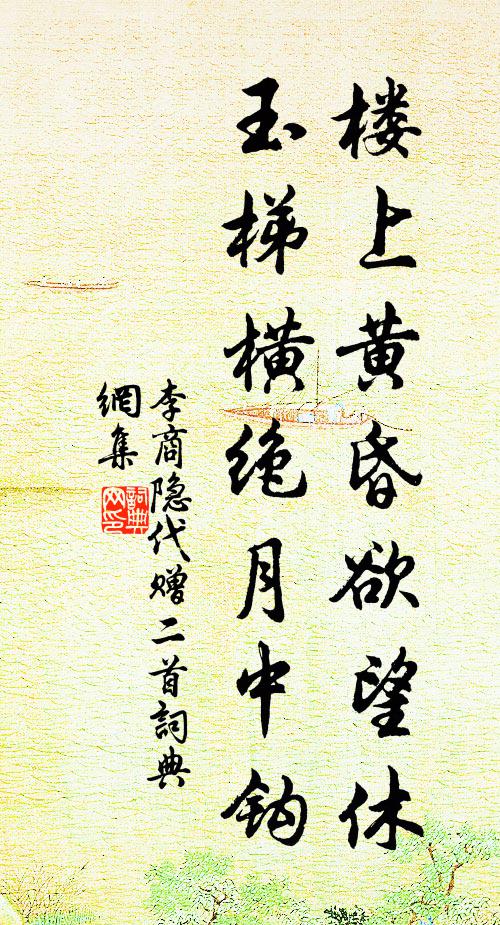 楼上黄昏欲望休
玉梯横绝月中钩
李商隐代赠二首詞典
網集
詞典
网印